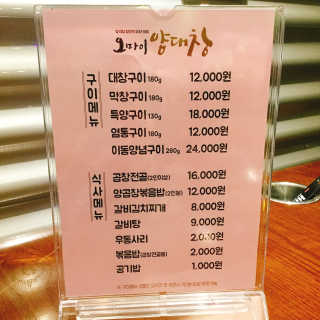 오마이 양대창
구이메뉴
대창구이 180g 12.000원
막창구이 180g 12.000원
특양구이 130g 18.000원
염통구이 180g 12.000원
이동양념구이 280g 24.000원
식사메뉴
곱창전골(2인이상) 16.000원
양곱창볶음밥(2인분) 12.000원
갈비김치찌개 8.000원
갈비탕 9.000원
우동사리 2.000원
볶음밥(곱창전골용) 2.000원
공기밥 1.000원